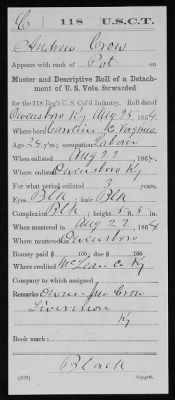 C | 118 | U.S.C.T.
Andrew Crow
Appears with rank of Pvt. on
Muster and Descriptive Roll of a Detach-
ment of U. S. Vols. forwarded
for the 118 Reg't U.S. Col'd Infantry. Roll dated
Owensboro Ky Aug 25, 1864.
Where born
Age 24 y'rs; occupation Laborer
When enlisted Aug 22, 1864.
Where enlisted Owensboro Ky
For what period enlisted 3 years.
Eyes Blk; hair Blk
Complexion Blk; height 5 ft. 8 in.
When mustered in Aug 22, 1864
Where mustered in Owensboro
Bounty paid $ 100; due $ 100
Where credited McLean Co Ky
Company to which assigned
Remarks: Owner Crow
Livermore
Ky
Book mark:
Black
(339) Copyist.